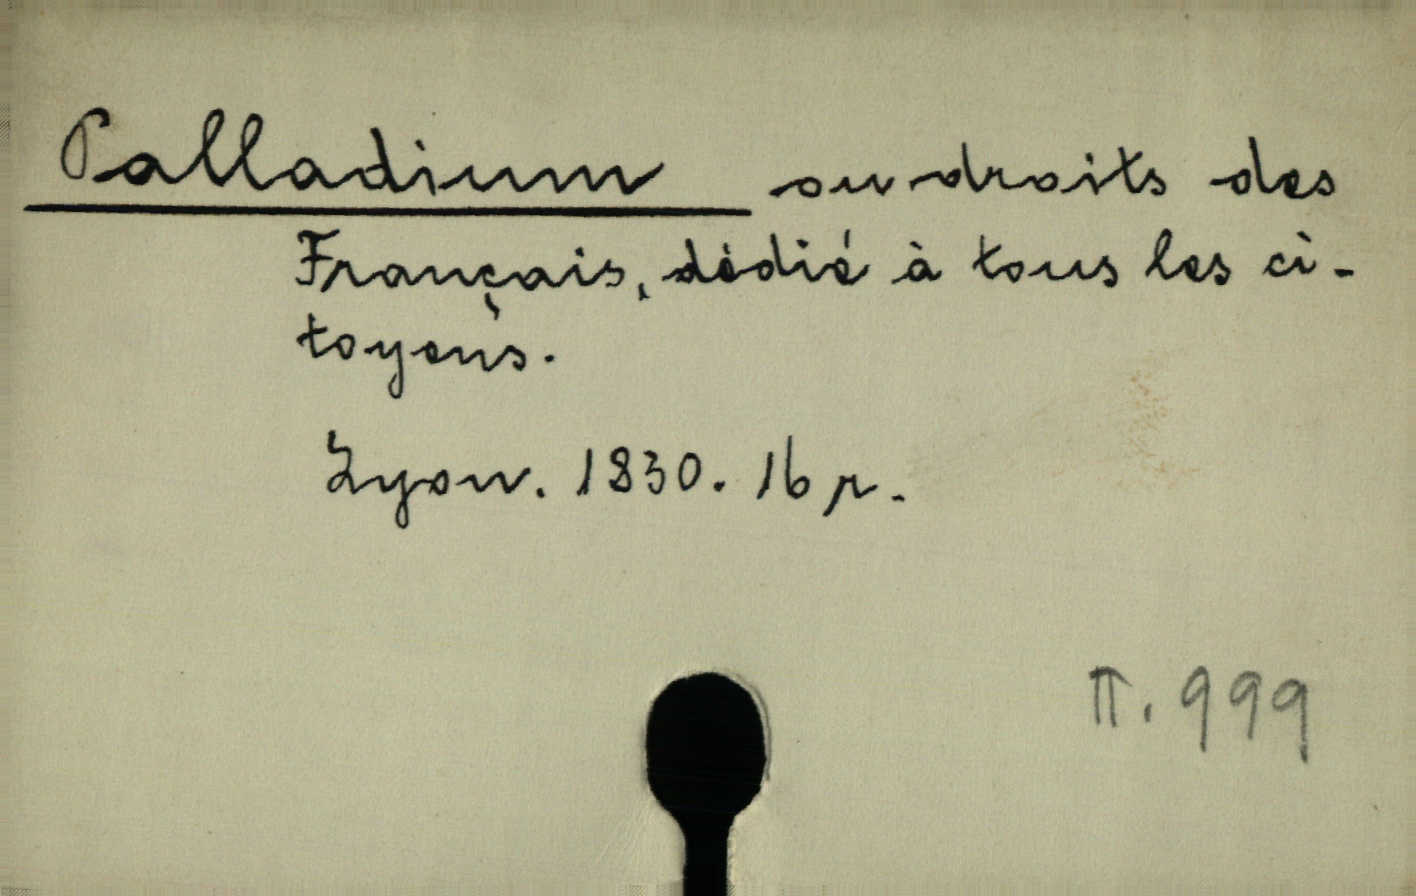 Palladium ou droits des
Français, dédié à tous les ci-
toyens.
Lyon. 1830. 16 p.
π. 999